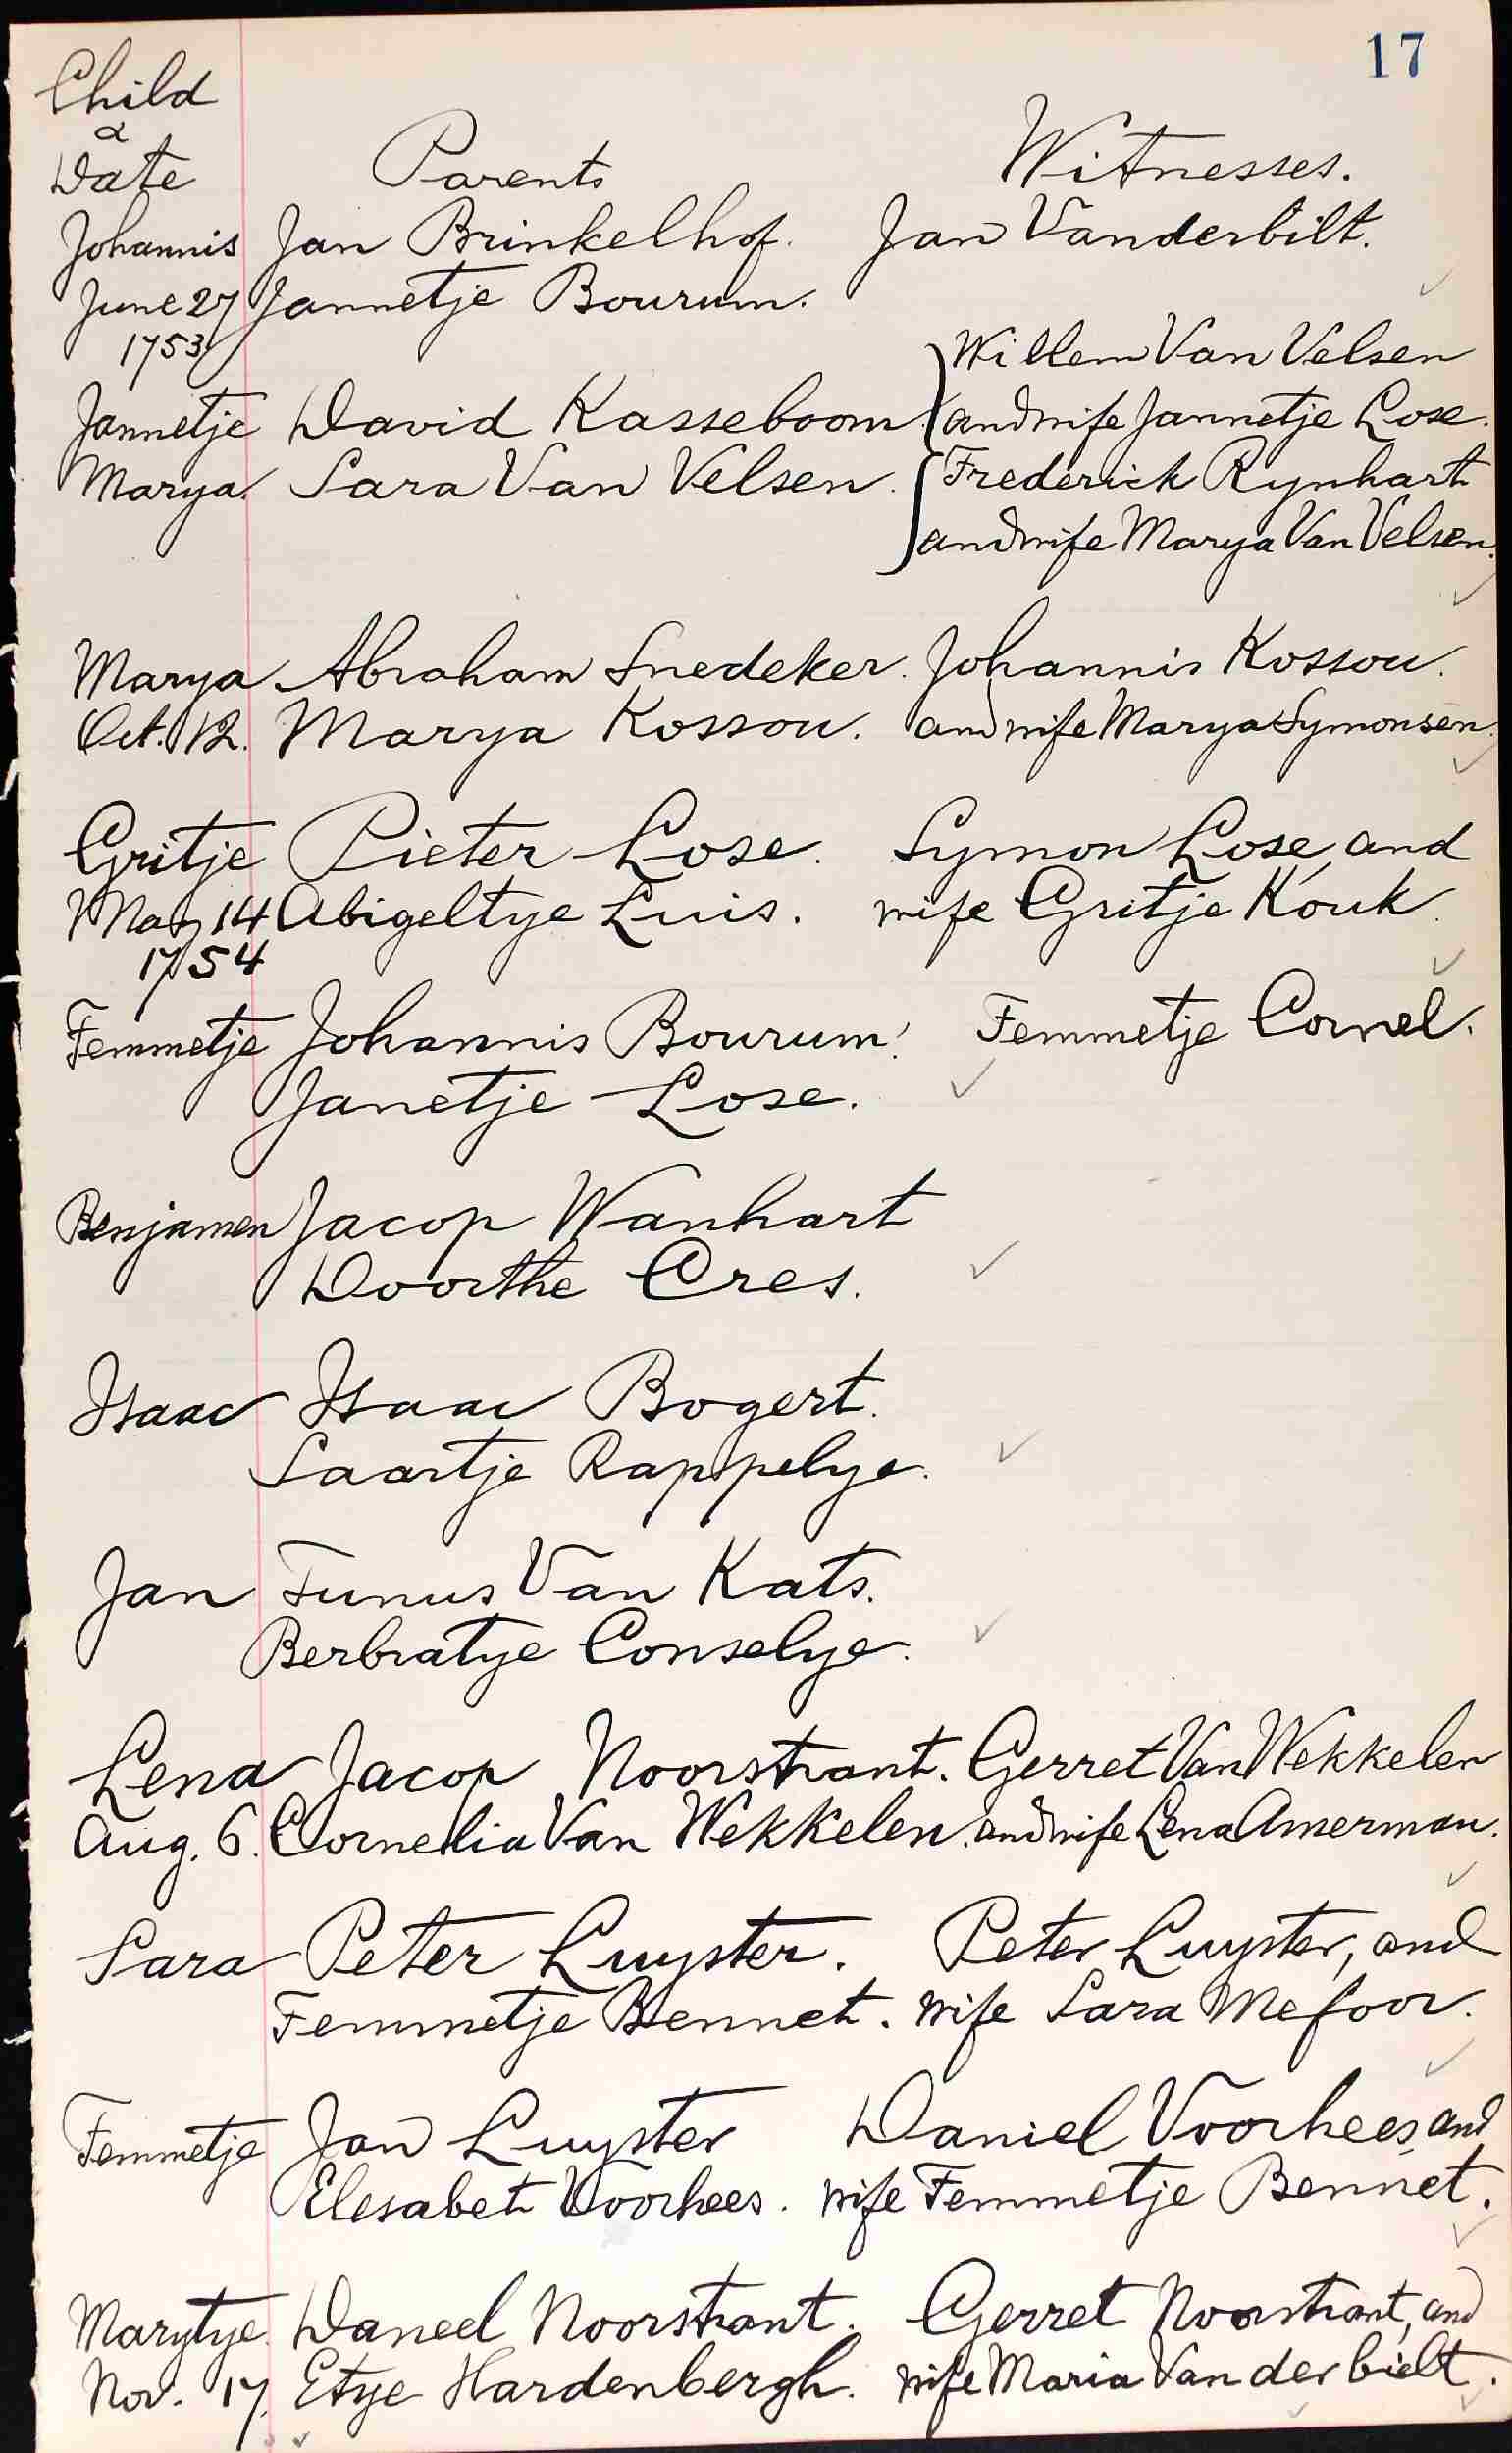 17
Child
&
Date Parents Witnesses.
Johannis Jan Brinkelhof. Jan Vanderbilt.
June 27 Jannetje Bourum.
1753 Willem Van Velsen
Jannetje David Kasseboom. and wife Jannetje Lose.
Marya. Sara Van Velsen. Frederick Rynhart
and wife Marya Van Velsen.
Marya Abraham Snedeker. Johannis Kossou.
Oct. 12. Marya Kossou. and wife Marya Symonsen.
Gritje Pieter Lose. Symon Lose, and
May 14 Abigeltye Luis. wife Gritje Kouk.
1754
Femmetje Johannis Bourum. Femmetje Cornel.
Janetje Lose.
Benjamen Jacop Wanhart
Doorthe Cres.
Isaac Isaac Bogert.
Saartje Rappelye.
Jan Tunus Van Kats.
Berbratye Conselye.
Lena Jacop Noorstrant. Gerret Van Wekkelen
Aug. 6. Cornelia Van Wekkelen. and wife Lena Amerman.
Sara Peter Luyster. Peter Luyster, and
Femmetje Bennet. wife Sara Mefoor.
Femmetje Jan Luyster Daniel Voorhees, and
Elesabet Voorhees. wife Femmetje Bennet.
Marytye. Daneel Noorstrant. Gerret Noorstrant, and
Nov. 17. Etye Hardenbergh. wife Maria Van der bielt.